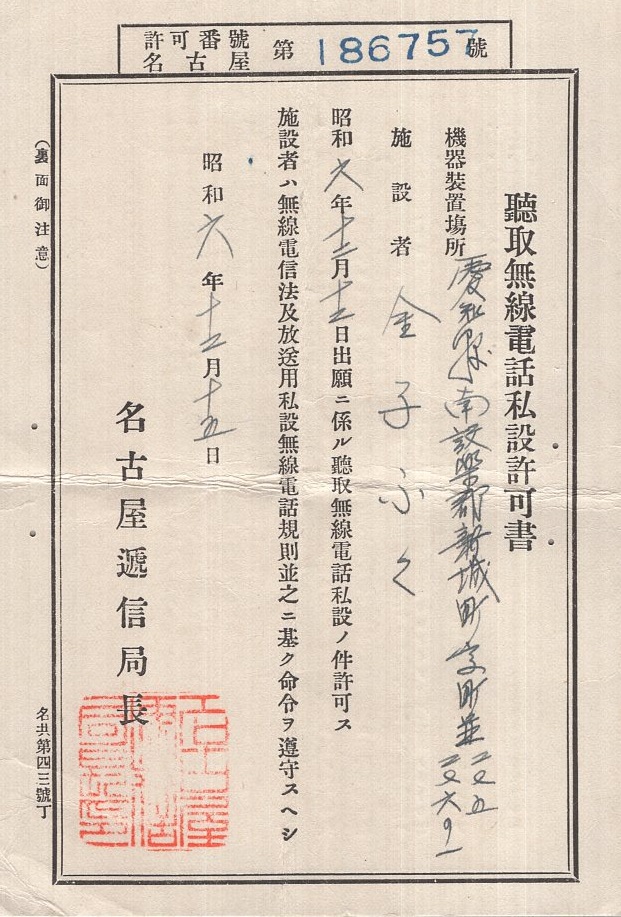 許可番號
名古屋
第186757號
聽取無線電話私設許可書
機器装置場所 愛知県南設樂郡新城町字町並
施設者 金子ふく
昭和六年十二月十二日出願ニ係ル聽取無線電話私設ノ件許可ス
施設者ハ無線電信法及放送用私設無線電話規則並之ニ基ク命令ヲ遵守スヘシ
昭和六年十二月十五日
名古屋遞信局長
(裏面御注意)
名共第四三號丁